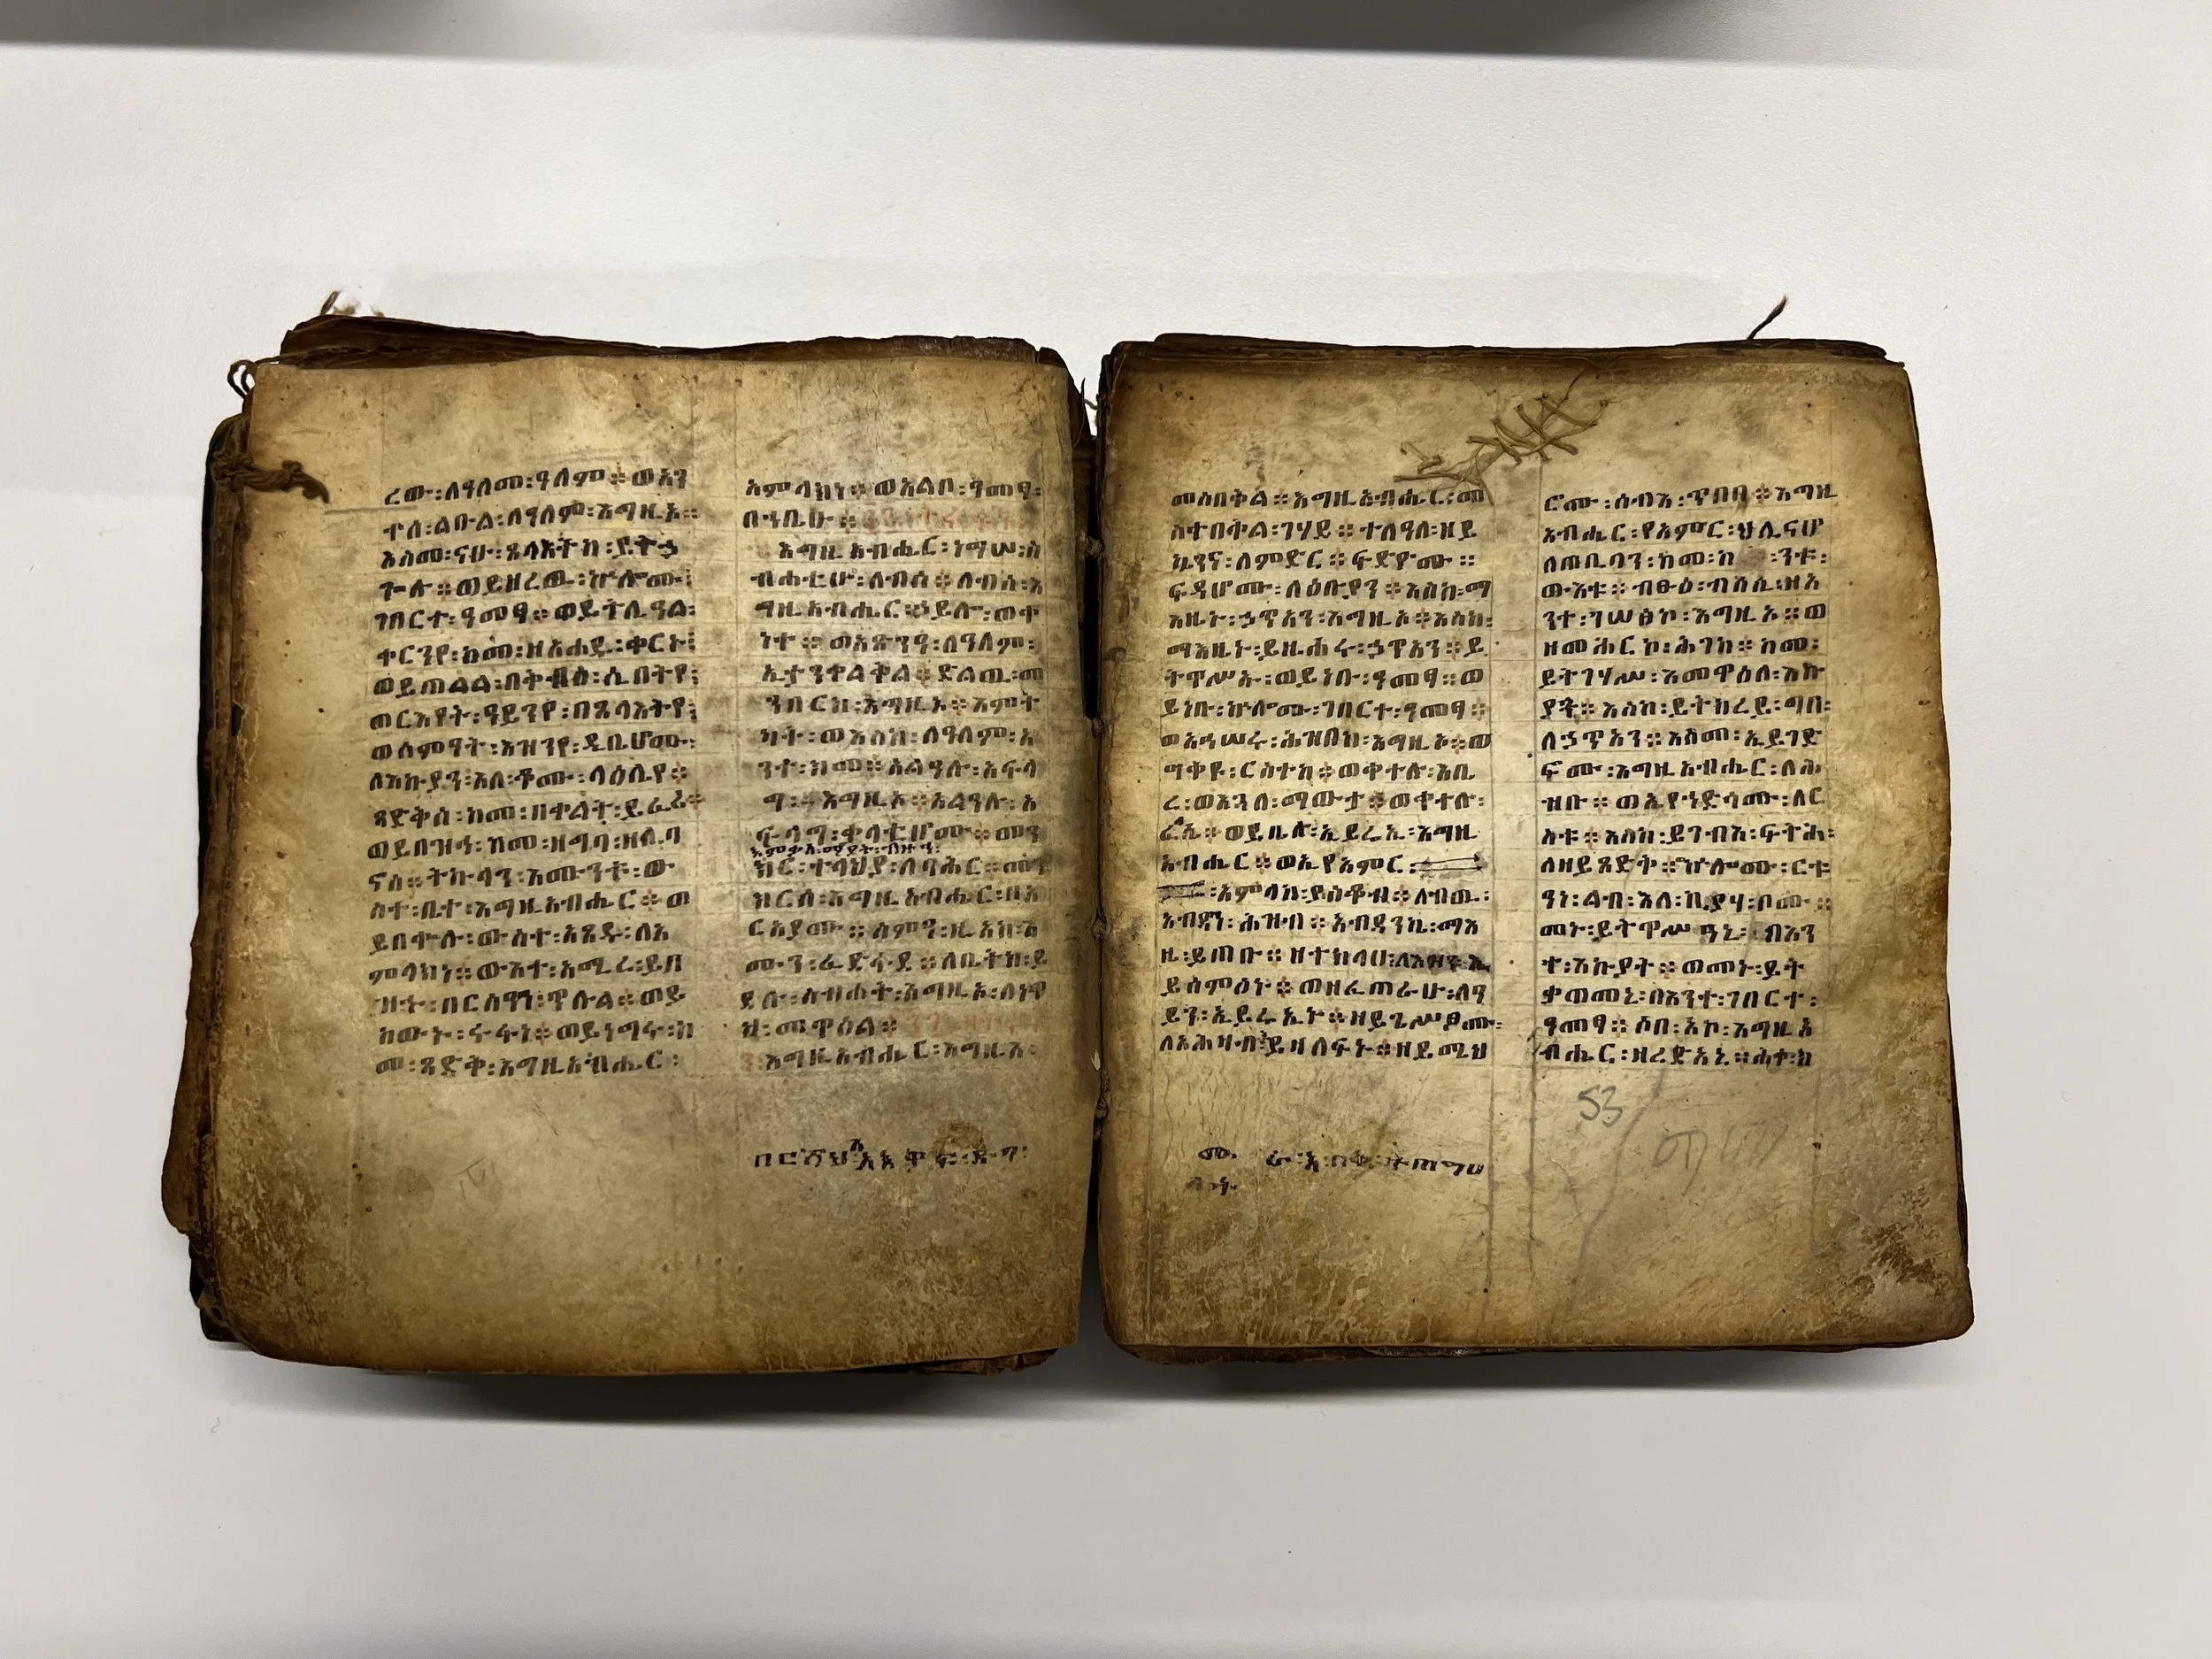 ረው፡ለዓለመ፡ዓለም፨ወአን
ተሰ፡ልዑል፡ለዓለም፡እግዚኦ።
እስመ፡ናሁ፡ጸላእትከ፡ይትኃ
ጐሉ፨ወይዘረዉ፡ኵሎሙ፡
ገበርተ፡ዓመፃ፨ወይትሌዓል፡
ቀርንየ፡ከመ፡ዘአሐዱ፡ቀርኑ፡
ወይጠልል፡በቅብዕ፡ሲበትየ፡
ወርእየት፡ዓይንየ፡በጸላእትየ፡
ወሰምዓት፡እዝንየ፡ዲቤሆሙ፡
ለእኩያን፡እለ፡ቆሙ፡ላዕሌየ፨
ጻድቅሰ፡ከመ፡በቀልት፡ይፈሪ፨
ወይበዝኅ፡ከመ፡ዘግባ፡ዘሊባ
ኖስ፨ትኩላን፡እሙንቱ፡ው
ስተ፡ቤተ፡እግዚአብሔር፨ወ
ይበቍሉ፡ውስተ፡አጸዱ፡ለአ
ምላክነ፨ውእተ፡አሚረ፡ይበ
ዝኁ፡በርስዓን፡ጥሉል፨ወይ
ከውኑ፡ሩፉነ፨ወይነግሩ፡ከ
መ፡ጻድቅ፡እግዚአብሔር፡
አምላክነ፨ወአልቦ፡ዓመፃ፡
በኀቤሁ፨
እግዚአብሔር፡ነግሠ፡ስ
ብሐቲሁ፡ለብሰ፨ለብሰ፡እ
ግዚአብሔር፡ኃይሎ፡ወቀ
ነተ፨ወአጽንዓ፡ለዓለም፡
ኢታንቀልቅል፨ድልው፡መ
ንበርከ፡እግዚኦ፨እምት
ካት፡ወእስከ፡ለዓለም፡አ
ንተ፡ክመ፨አልዓሉ፡አፍላ
ግ፡እግዚኦ፨አልዓሉ፡አ
ፍላግ፡ቀላቲሆሙ፨መን
እምቃለ፡ማያት፡ብዙኅ፡
ክረ፡ተላህያ፡ለባሕር፨መን
ክርሰ፡እግዚአብሔር፡በአ
ርያሙ፨ስምዓ፡ዚአከ፡እ
ሙን፡ፈድፋደ፨ለቤትከ፡ይ
ደሉ፡ስብሐት፡እግዚኦ፡ለነዋ
ኅ፡መዋዕል፨
እግዚአብሔር፡እግዚእ፡
መስበቅል፨እግዚአብሔር፡መ
ስተበቅል፡ገሃደ፨ተለዓለ፡ዘይ
ኴንና፡ለምድር፨ፍድዮሙ፨
ፍዳሆሙ፡ለዕቡያን፨እስከ፡ማ
እዜኑ፡ኃጥአን፡እግዚኦ፨እስከ፡
ማእዜኑ፡ይዜሐሩ፡ኃጥአን፨ይ
ትዋሥኡ፡ወይነቡ፡ዓመፃ፨ወ
ይነቡ፡ኵሎሙ፡ገበርተ፡ዓመፃ፨
ወአሕሠሩ፡ሕዝበከ፡እግዚኦ፨ወ
ሣቀዩ፡ርስተከ፨ወቀተሉ፡እቤ
ረ፡ወእጓለ፡ማውታ፨ወቀተሉ፡
ወይቤሉ፡ኢይሬኢ፡እግዚ
አብሔር፨ወኢየአምር፡
አምላከ፡ያዕቆብ፨ለብዉ፡
አብዳነ፡ሕዝብ፨አብዳንኬ፡ማእ
ዜ፡ይጠቡ፨ዘተከላሁ፡ለእዝን፡ኢ
ይሰምዕኑ፨ወዘፈጠራሁ፡ለዓ
ይን፡ኢይሬኢኑ፨ዘይጌሥፆሙ፡
ለአሕዛብ፡ኢይዛለፍኑ፨ዘይሜህ
ሮሙ፡ለሰብእ፡ጥበበ፨እግዚ
አብሔር፡የአምር፡ህሊናሆ
ለጠቢባን፡ከመ፡ከ ንቱ፡
ውእቱ፨ብፁዕ፡ብእሲ፡ዘአ
ንተ፡ገሠፅኮ፡እግዚኦ፨ወ
ዘመሐርኮ፡ሕገከ፨ከመ፡
ይትገሃሥ፡እመዋዕለ፡እኩ
ያት፨እስከ፡ይትከረይ፡ግበ፡
ለኃጥአን፨እስመ፡ኢይገድ
ፎሙ፡እግዚአብሔር፡ለሕ
ዝቡ፨ወኢየኀድጎሙ፡ለር
ስቱ፨እስከ፡ይገብእ፡ፍትሕ፡
ለዘይጸድቅ፨ኵሎሙ፡ርቱ
ዓነ፡ልብ፡እለ፡ቢያሃ፡ቦሙ፨
መኑ፡ይትዋሥዓኒ፡በእን
ተ፡እኩያት፨ወመኑ፡ይት
ቃወመኒ፡በእንተ፡ገበርተ፡
ዓመፃ፨ሶበ፡አኮ፡እግዚአ
ብሔር፡ዘረድአኒ፨ሕቀ፡ከ
53